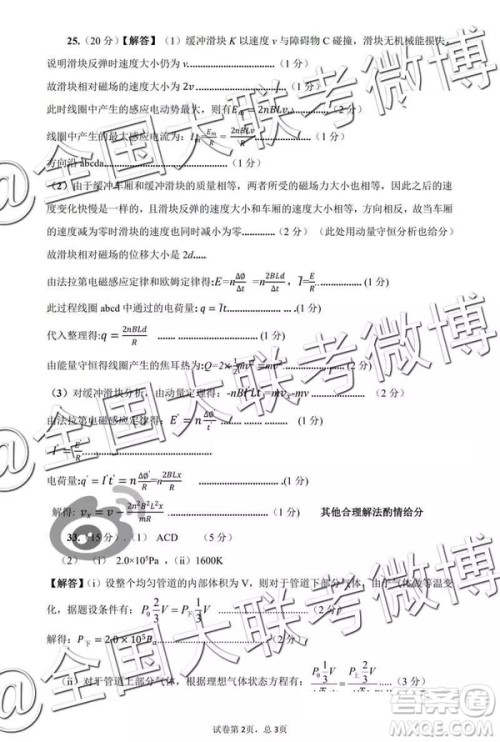 25.（20 分）【解答】（1）缓冲滑块 K 以速度 v 与障碍物 C 碰撞，滑块无机械能损失，
说明滑块反弹时速度大小仍为 v……（1 分）
故滑块相对磁场的速度大小为 2v……（1 分）
此时线圈中产生的感应电动势最大，则有Eₘ = 2nBLv……（2 分）
线圈中产生的最大感应电流为：Iₘ=Eₘ/R = 2nBLv/R……（1 分）
方向沿 abcda……（1 分）
（2）由于缓冲车厢和缓冲滑块的质量相等，两者所受的磁场力大小也相等，因此它们的速
度变化快慢是一样的，且滑块反弹的速度大小和车厢的速度大小相等，方向相反，故当车厢
的速度减为零时滑块的速度也同时减小为零……（2 分）（此处用动量守恒分析也给分）
故滑块相对磁场的位移大小是 2d……
由法拉第电磁感应定律和欧姆定律得:E=nΔØ/Δt =n2BLd/Δt，I=E/R……(1 分)
此过程线圈 abcd 中通过的电荷量: q = It……(1 分)
代入整理得:q = 2nBLd/R……(1 分)
由能量守恒得线圈产生的焦耳热为:Q=2×½mv²……(1 分)
（3）对缓冲滑块分析，由动量定理得：-nBI'Lt=mvₓ-mv……（2 分）
由法拉第电磁感应定律得: E' = nΔØ'/t……(1 分)
I' = E'/R……(1 分)
电荷量:q' = I't' = nΔØ'/R = n2BLx/R……（1 分）
解得: vₓ = v − 2n²B²L²x/mR……（1 分） 其他合理解法酌情给分
33.（15 分）.（1） ACD （5 分）
（2） (i） 2.0×10⁵Pa，(ii）1600K
【解答】（i）设整个均匀管道的内部体积为 V，则对于管道下部分气体，由于气体做等温变
化，据题设条件有：P₀ 2/3 V = P下 1/3 V……（3 分）
解得：P下 = 2.0 × 10⁵Pa……（2 分）
（ii）对于管道上部分气体，根据理想气体状态方程有：P₀ 1/3 V = P上 2/3 V……（3 分）
试卷第 2页，总 3页
@全国大联考微博
@全国大联考微博